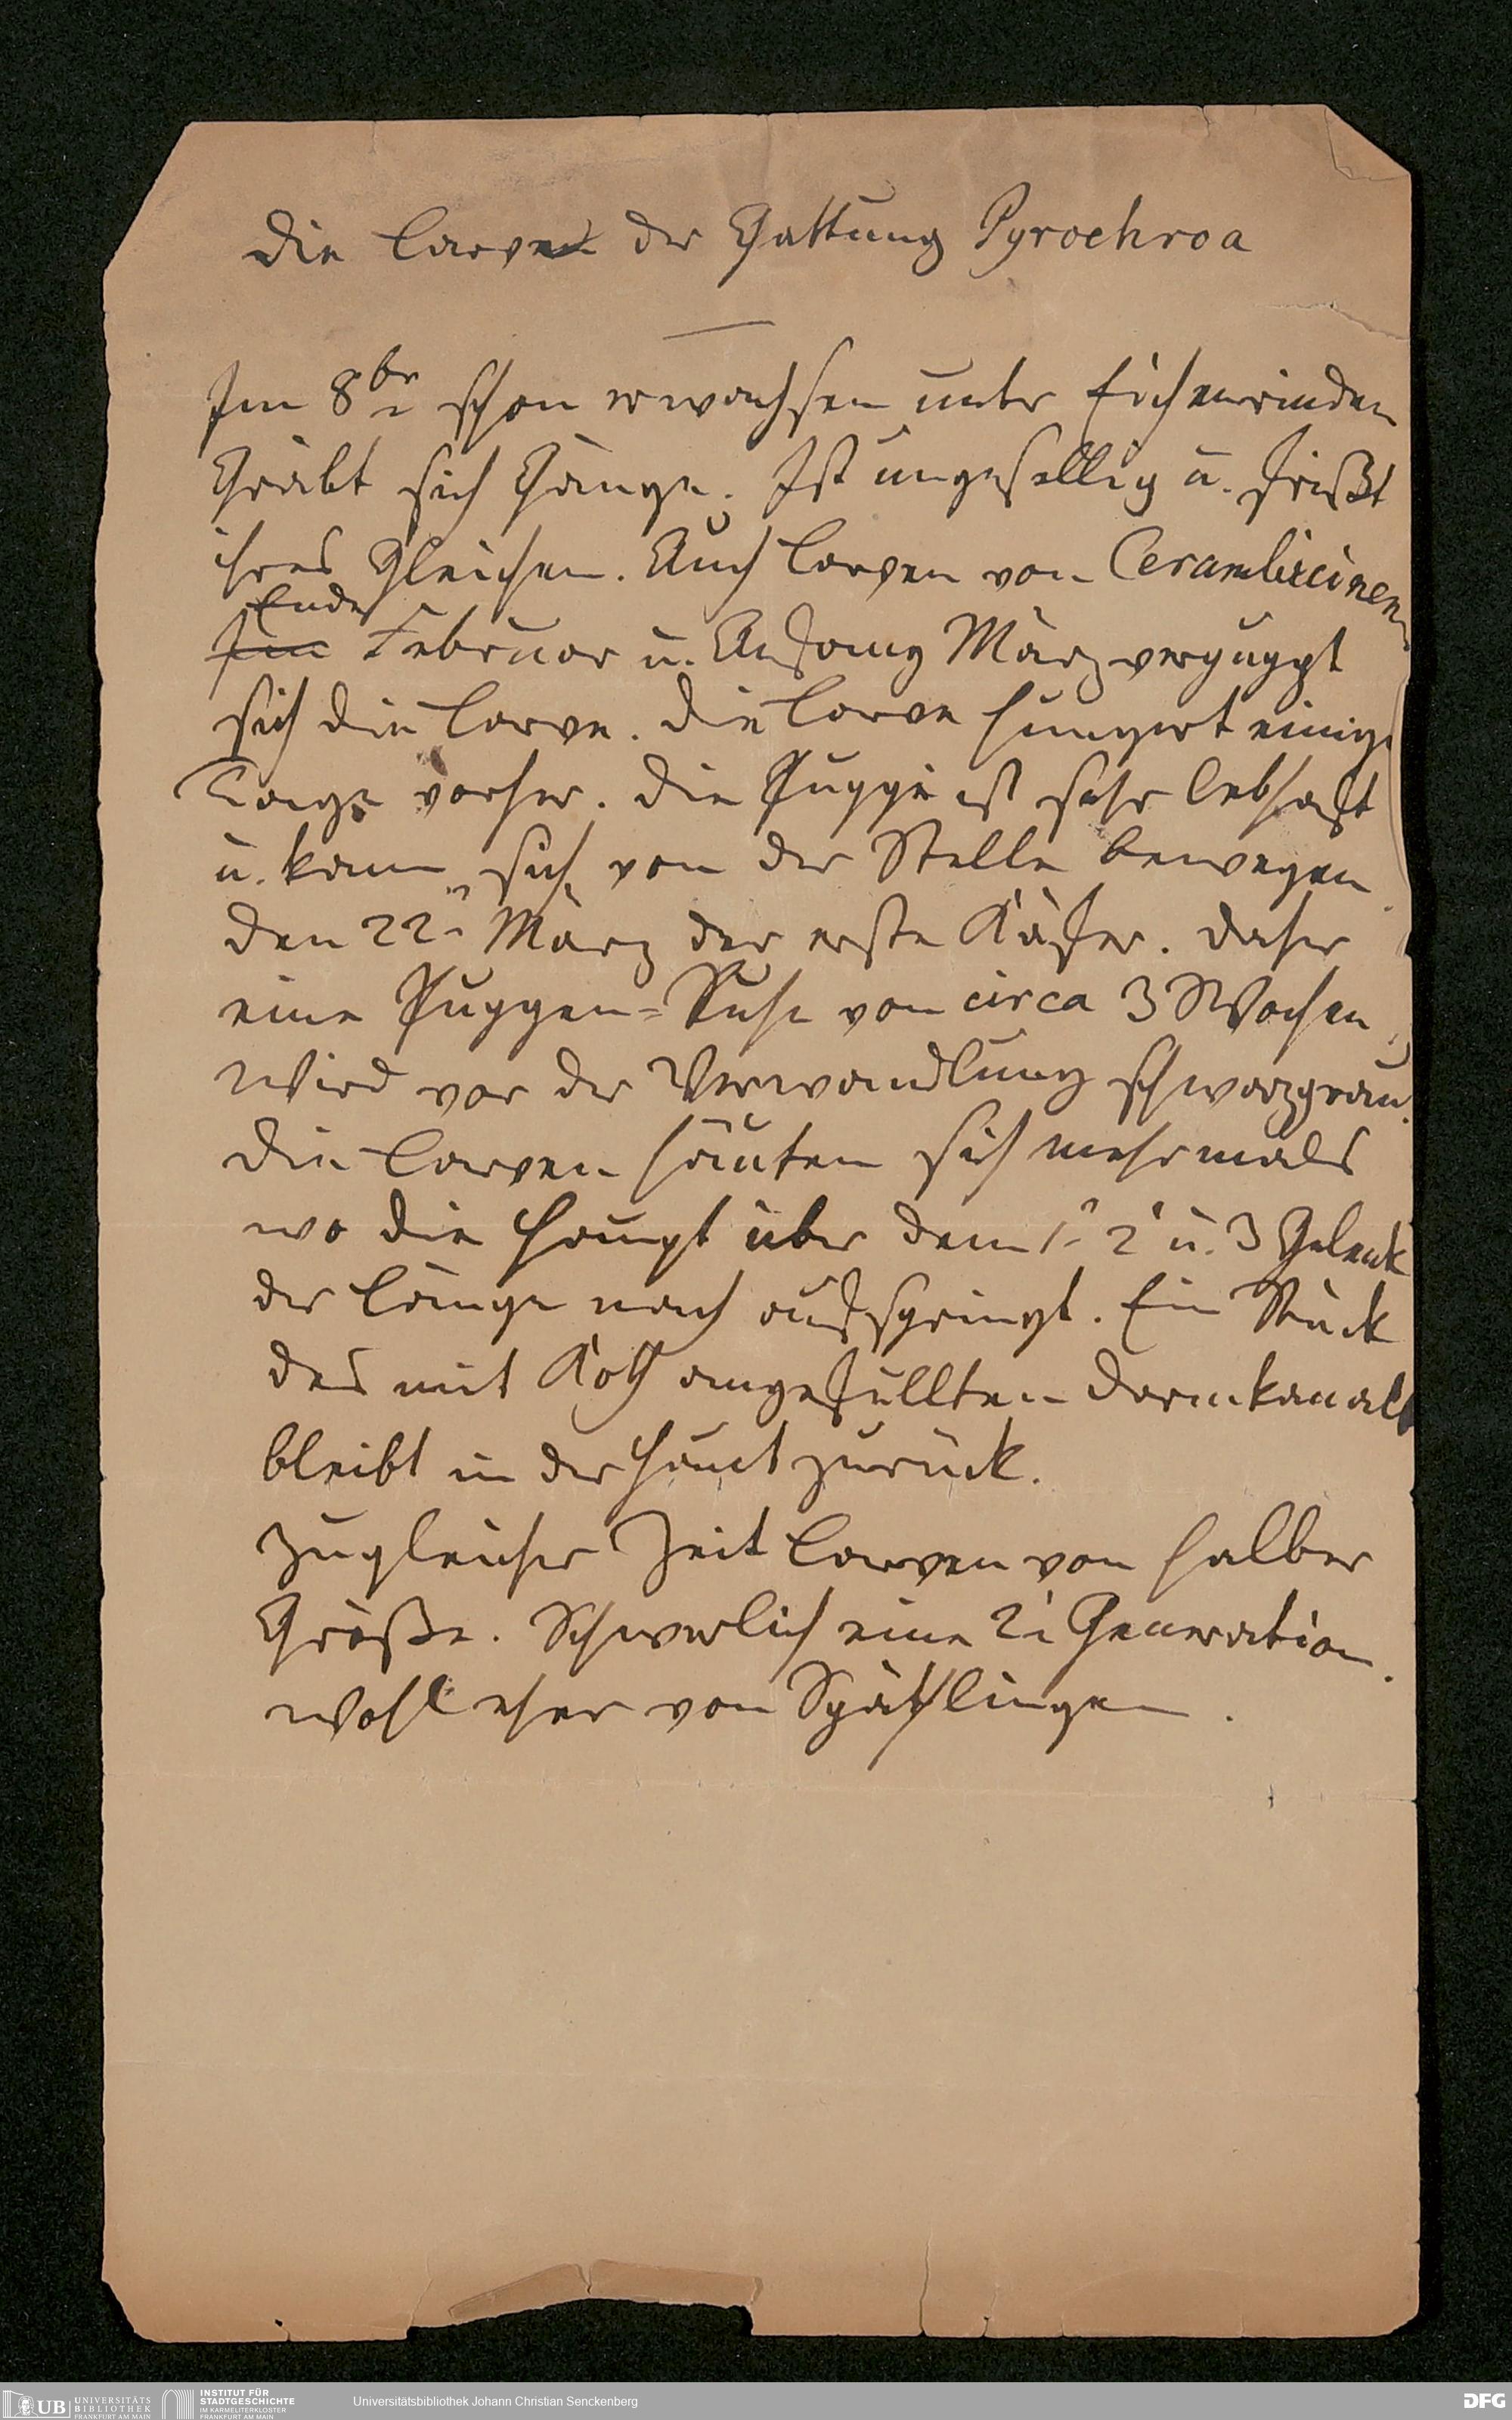 Die Larve der Gattung Pyrochroa
Im 8br schon erwachsen unter Eichenrinden
Gräbt sich Gänge. Ist ungesellig u. frißt
ihres Gleichen. Auch Larven von Cerambicinen
Ende
Im Februar u. Anfang März verpuppt
sich die Larve. Die Larve hungert einige
Tage vorher. Die Puppe ist sehr lebhaft
u. kann sich von der Stelle bewegen.
Den 22n März der erste Käfer. Daher
eine Puppen-Ruhe von circa 3 Wochen
Wird vor der Verwandlung schwarzgrau.
Die Larven häuten sich mehrmals
wo die Haupt über dem 1 2 u. 3 Gelenk
der Länge nach aufspringt. Ein Stück
des mit Koth angefüllten Darmkanals
bleibt in der Haut zurück.
Zugleicher Zeit Larven von halber
Größe. Schwerlich eine 2i Generation.
Wohl eher von Spätlingen.
UB UNIVERSITÄTS
BIBLIOTHEK
FRANKFURT AM MAIN
INSTITUT FÜR
STADTGESCHICHTE
IM KARMELITERKLOSTER
FRANKFURT AM MAIN
Universitätsbibliothek Johann Christian Senckenberg
DFG